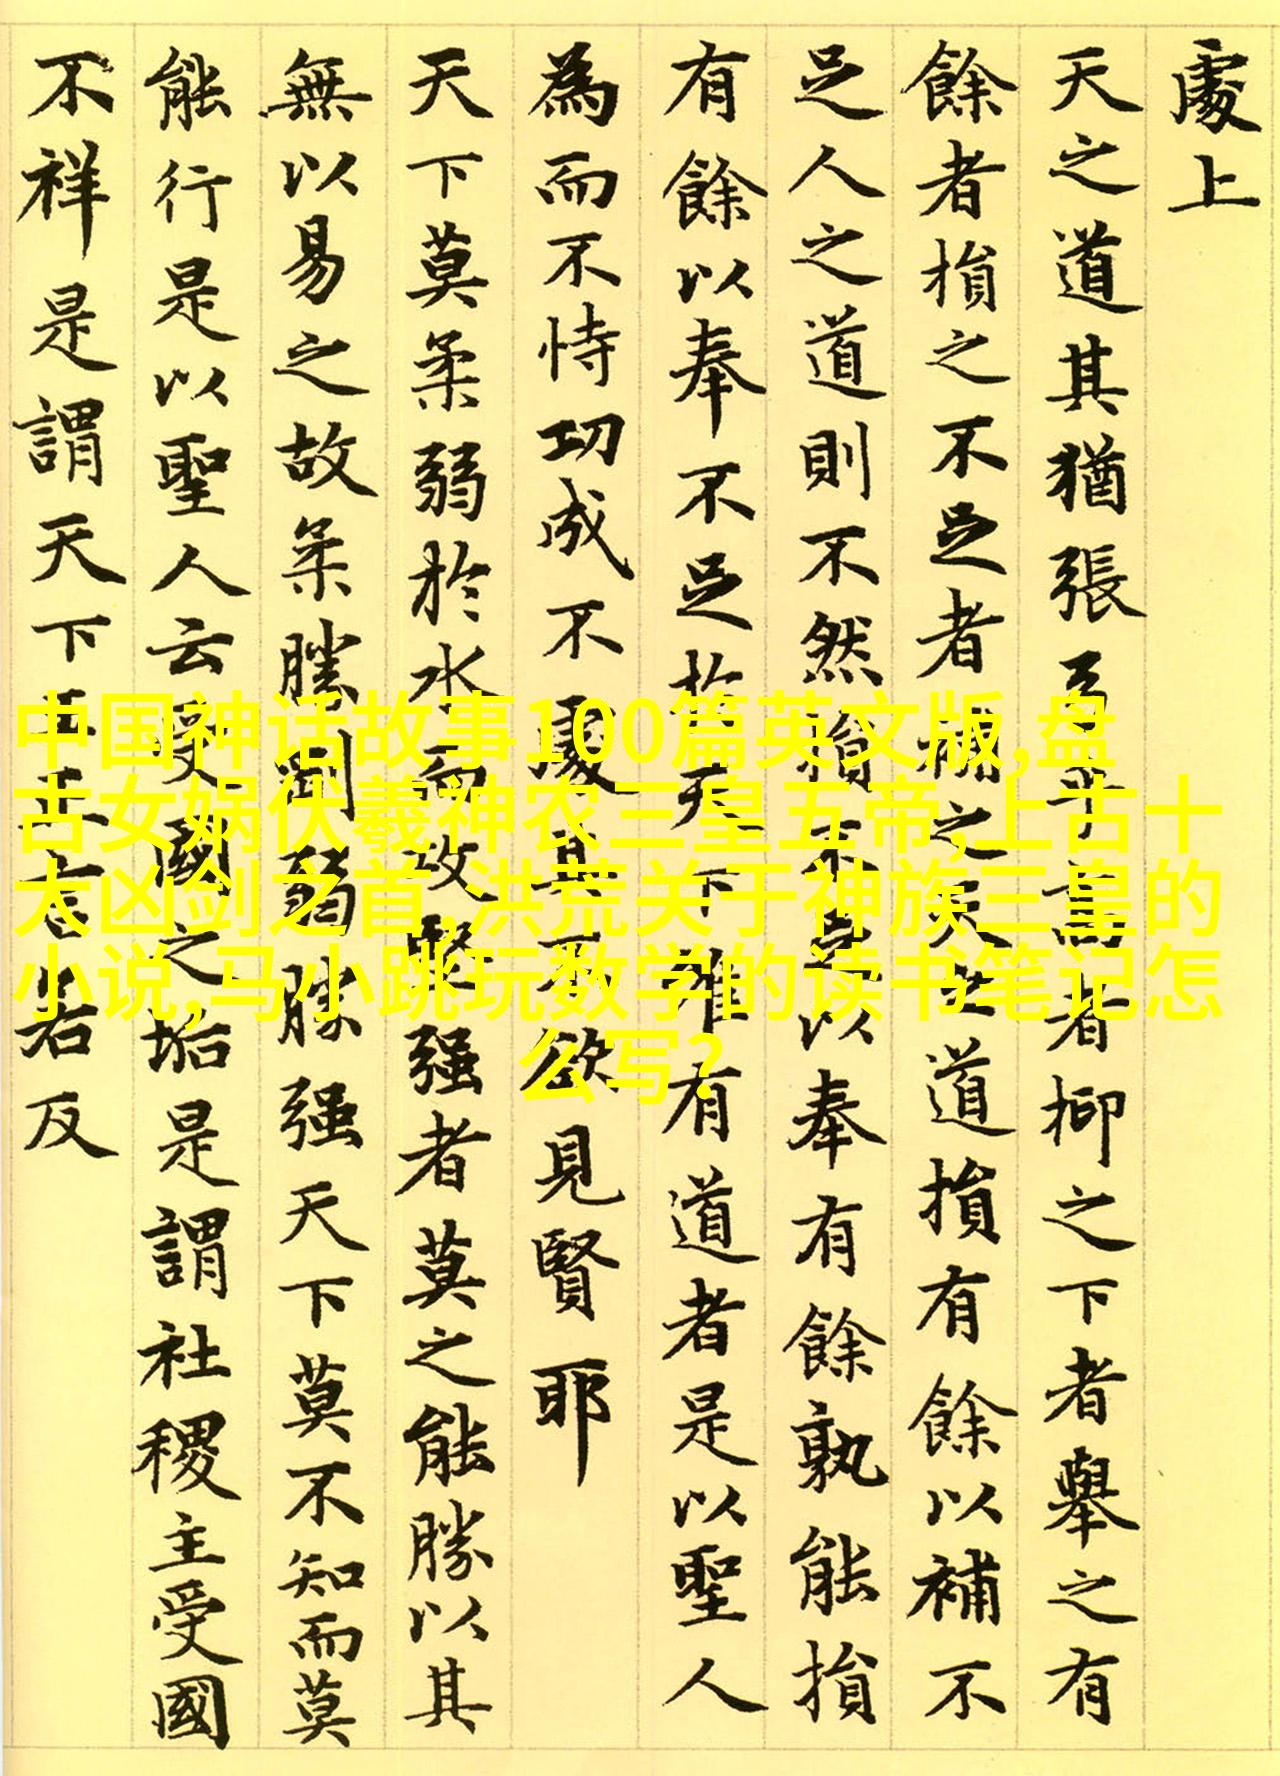 處上
天之道其猶張弓乎高者抑之下者舉之有
餘者損之不足者補之天之道損有餘以補不
足人之道則不然損不足以奉有餘孰能損
有餘以奉不足於天下唯有道者是以聖人
為而不恃功成不處其不欲見賢耶
天下莫柔弱於水而攻堅强者莫之能勝以其
無以易之故柔勝剛弱勝强天下莫不知而莫
能行是以聖人云受國之垢是謂社稷主受國
不祥是謂天下王正言若反
中国神话故事100篇英文版,盘
古女娲伏羲神农三皇五帝,上古十
大凶剑之首,洪荒关于神族三皇的
小说,马小跳玩数学的读书笔记怎
么写?